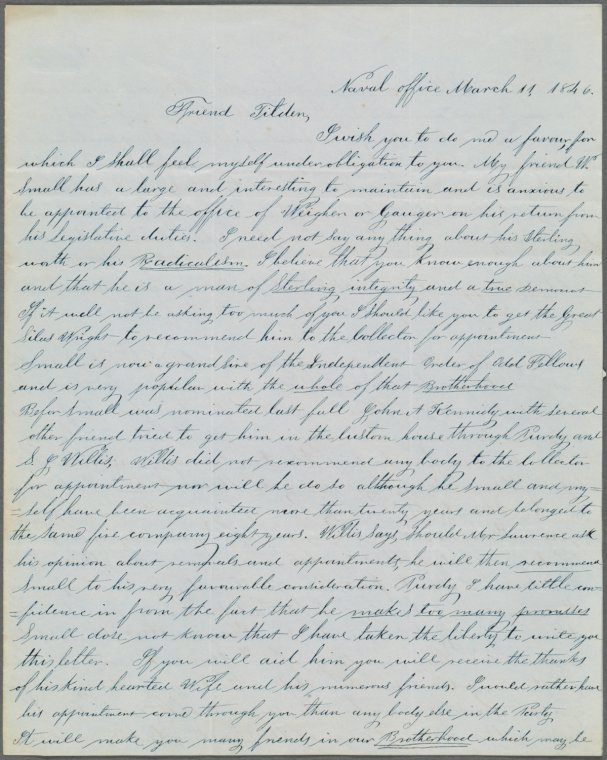 Naval office March 11, 1846.
Friend Tilden,
I wish you to do me a favour, for
which I shall feel myself under obligation to you. My friend Wm
Small has a large and interesting to maintain and is anxious to
be appointed to the office of Weigher or Gauger on his return from
his Legislative duties. I need not say any thing about his Sterling
worth or his Radicalism. I believe that you know enough about him
and that he is a man of Sterling integrity and a true Democrat
If it will not be asking too much of you I should like you to get the Great
Silas Wright to recommend him to the Collector for appointment
Small is now a grand Sire of the Independent Order of Odd Fellows
and is very popular with the whole of that Brotherhood
Befor Small was nominated last fall John A Kennedy with several
other friend tried to get him in the Custom house through Purdy and
S. C Willis, Willis did not recommend any body to the Collector
for appointment nor will he do so although he Small and my=
=self have been acquainted more than twenty years and belonged to
the same fire company eight years. Willis says, should Mr Lawrence ask
his opinion about removals and appointments, he will then recommend
Small to his very favourable consideration. Purdy I have little con=
=fidence in from the fact that he makes too many promises
Small dose not know that I have taken the liberty to write you
this letter. If you will aid him you will receive the thanks
of his kind hearted Wife and his numerous friends. I would rather have
his appointment come through you than any body else in the Party
It will make you many friends in our Brotherhood which may be